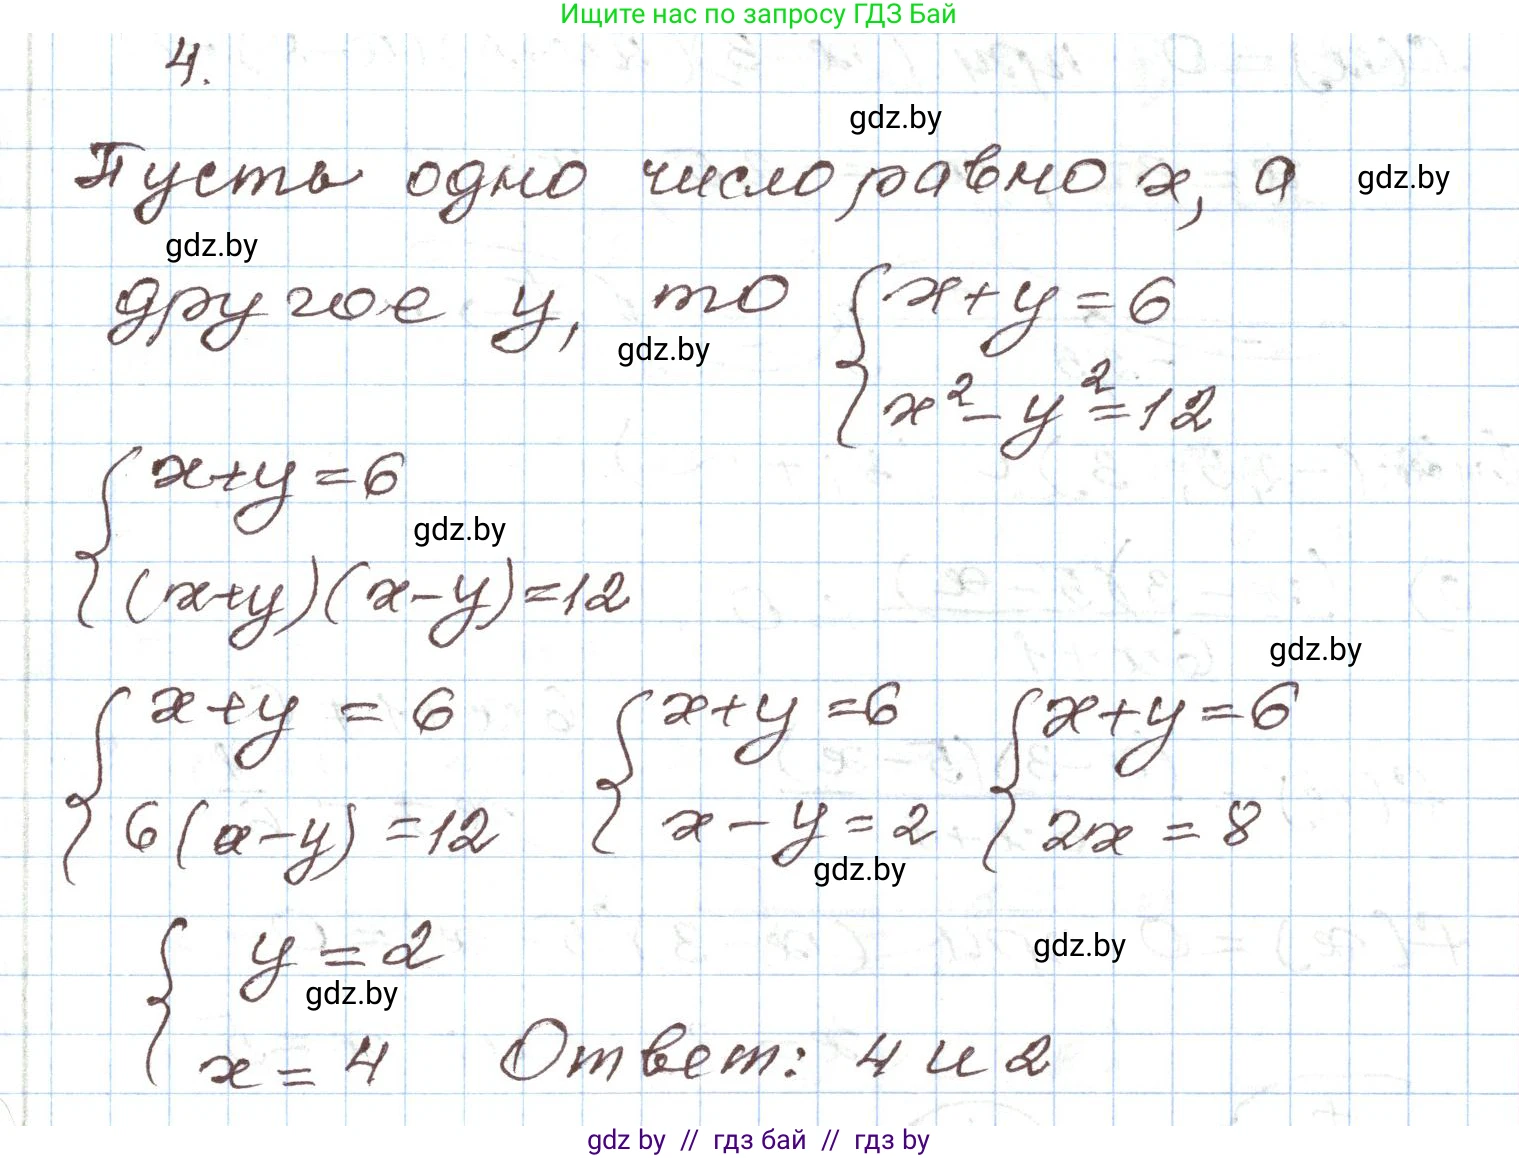 Ищите нас по запросу ГДЗ Бай
4.
gdz.by
Пусть одно число равно x, а gdz.by
gdz.by
другое y, то { x+y=6
gdz.by
x²-y²=12
{ x+y=6
gdz.by
(x+y)(x-y)=12
gdz.by
{ x+y=6 { x+y=6 { x+y=6
6(x-y)=12 x-y=2 2x=8
gdz.by
{ y=2 gdz.by
gdz.by
x=4 Ответ: 4 и 2
gdz by // гдз бай // гдз by